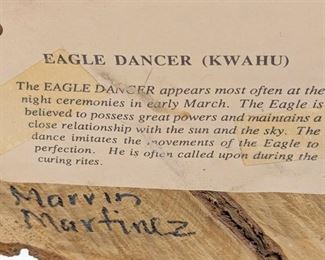 EAGLE DANCER (KWAHU)
The EAGLE DANCER appears most often at the
night ceremonies in early March. The Eagle is
believed to possess great powers and maintains a
close relationship with the sun and the sky. The
dance imitates the movements of the Eagle to
perfection. He is often called upon during the
curing rites.
Marvin
Martinez